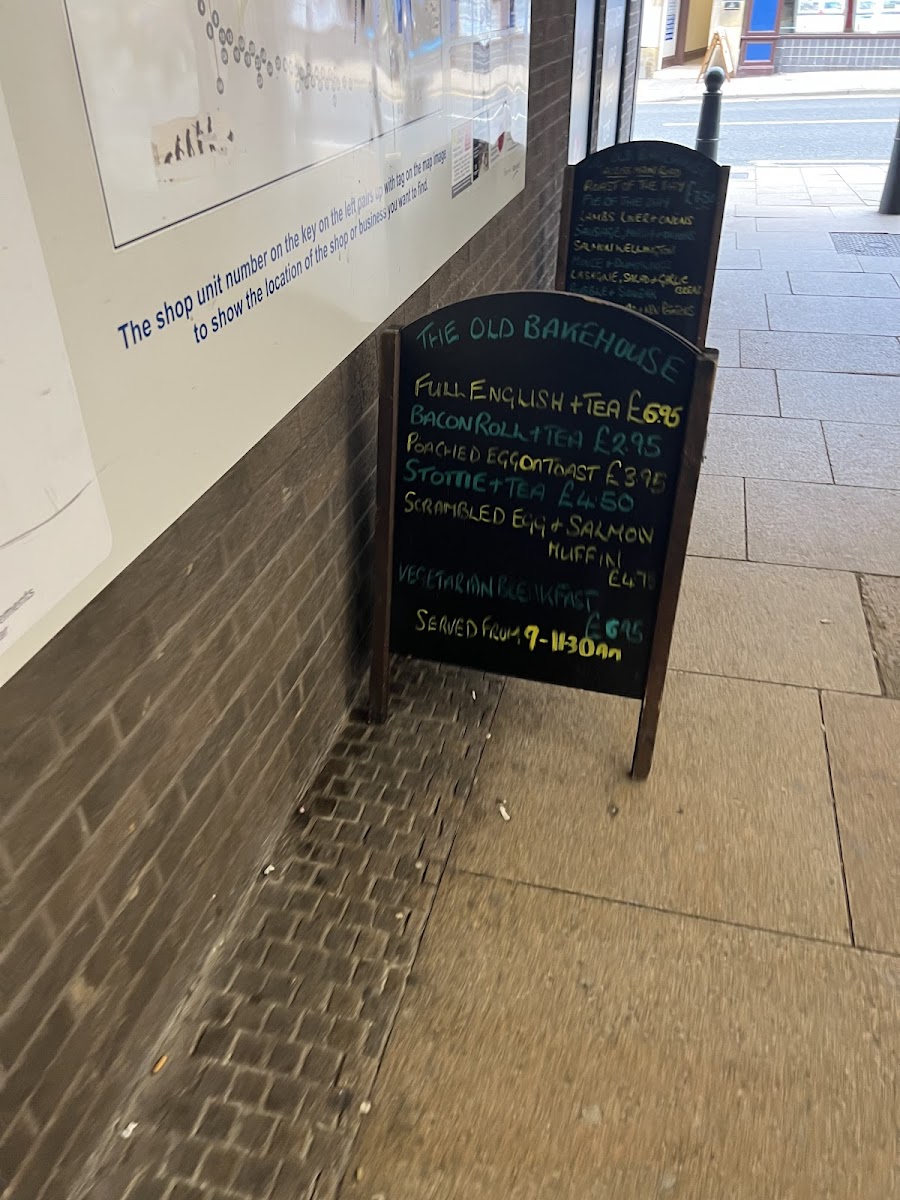 The shop unit number on the key on the left pairs up with tag on the map image
to show the location of the shop or business you want to find.
ROAST OF THE DAY
PIE OF THE DAY
LAMBS LIVER + ONIONS
SALMON WELLINGTON
LASAGNE, SALAD + GARLIC
BREAD
THE OLD BAKEHOUSE
FULL ENGLISH + TEA £6.95
BACON ROLL + TEA £2.95
POACHED EGG ON TOAST £3.95
STOTTIE + TEA £4.50
SCRAMBLED EGG + SALMON
MUFFIN
VEGETARIAN BREAKFAST
£6.95
SERVED FROM 9-11:30am